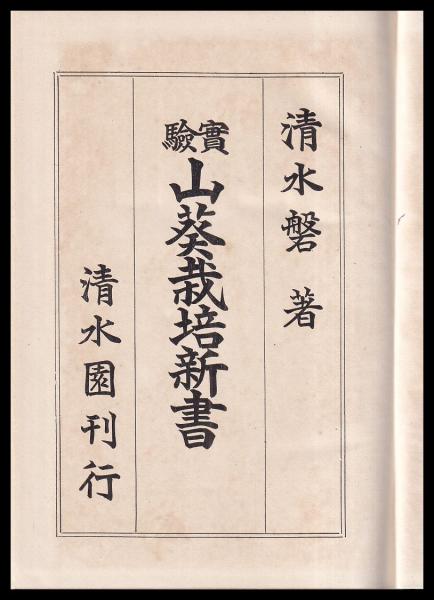 清水磐 著
實驗
山葵栽培新書
清水園刊行